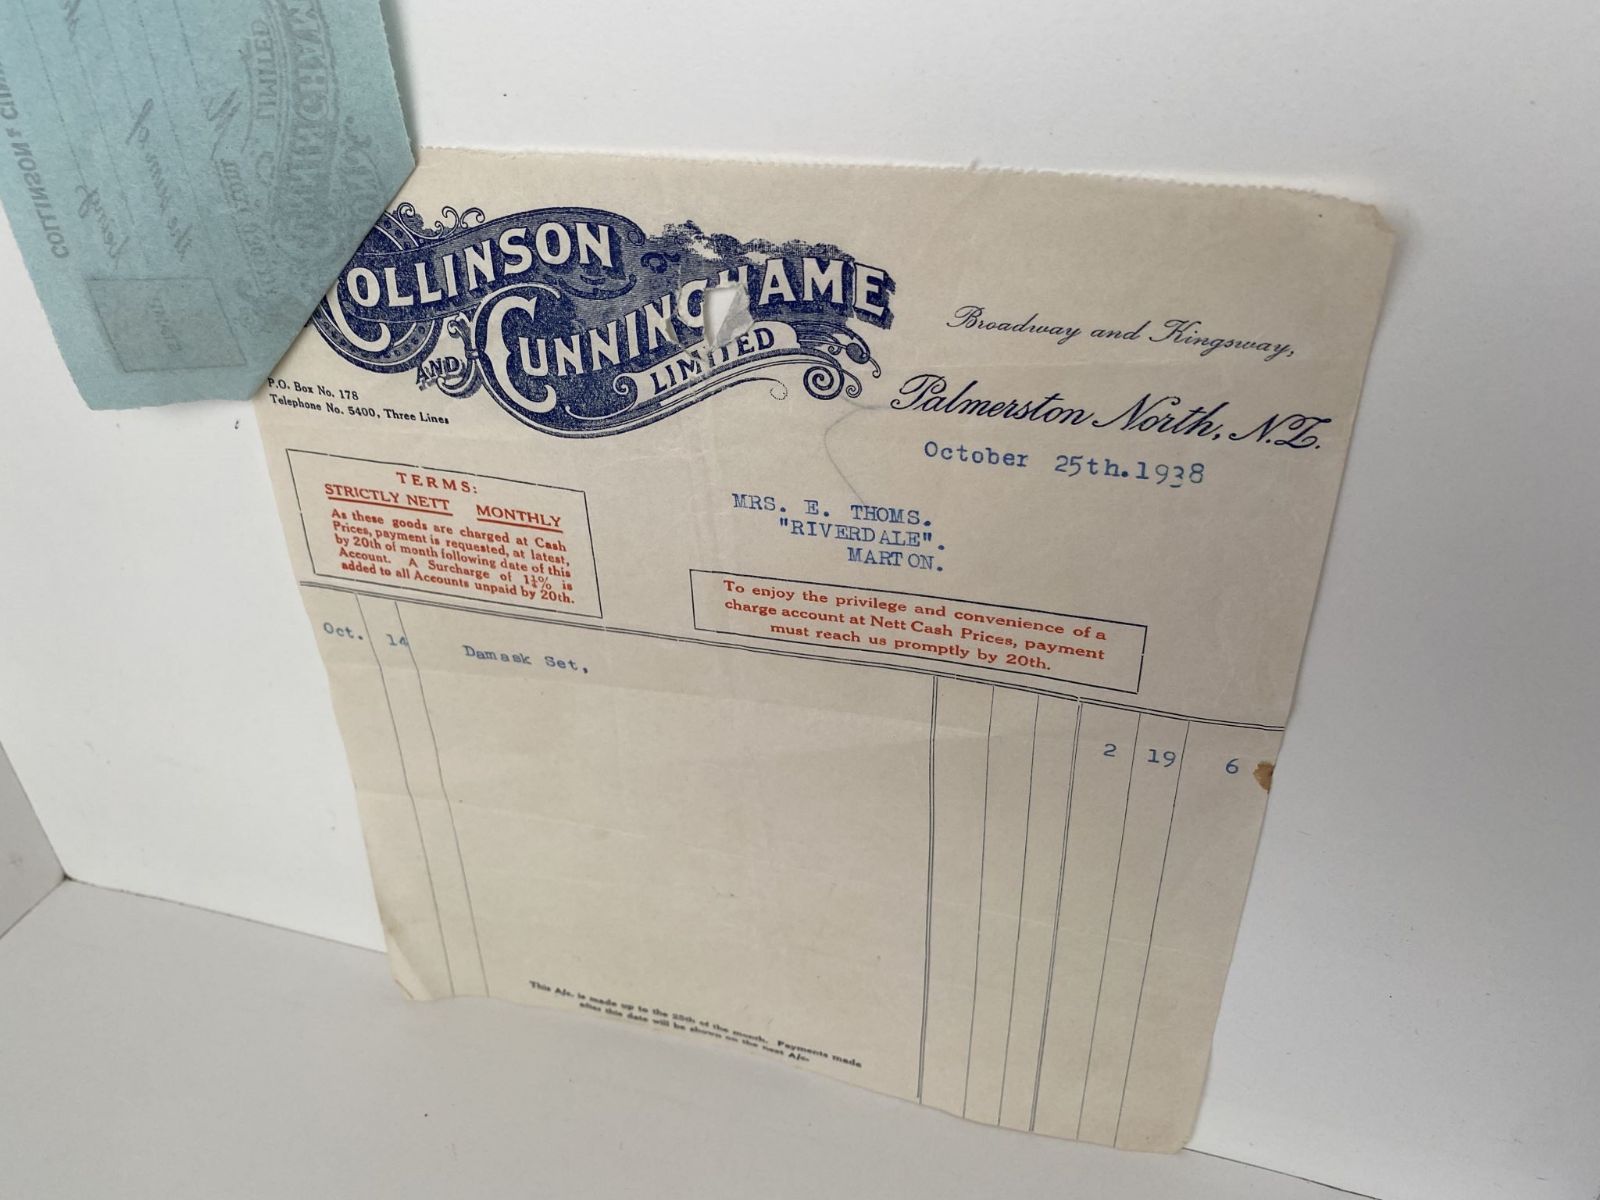 COLLINSON
AND CUNNINGHAME
LIMITED
P.O. Box No. 178
Telephone No. 5400, Three Lines
Broadway and Kingsway,
Palmerston North, N.Z.
October 25th.1938
MRS. E. THOMS.
"RIVERDALE".
MARTON.
TERMS:
STRICTLY NETT MONTHLY
As these goods are charged at Cash
Prices, payment is requested, at latest,
by 20th of month following date of this
Account. A Surcharge of 1¼% is
added to all Accounts unpaid by 20th.
To enjoy the privilege and convenience of a
charge account at Nett Cash Prices, payment
must reach us promptly by 20th.
Oct. 14 Damask Set,
2 19 6
This A/c. is made up to the 25th of the month. Payments made
after this date will be shown on the next A/c.
COLLINSON &
LIMITED
the sum of